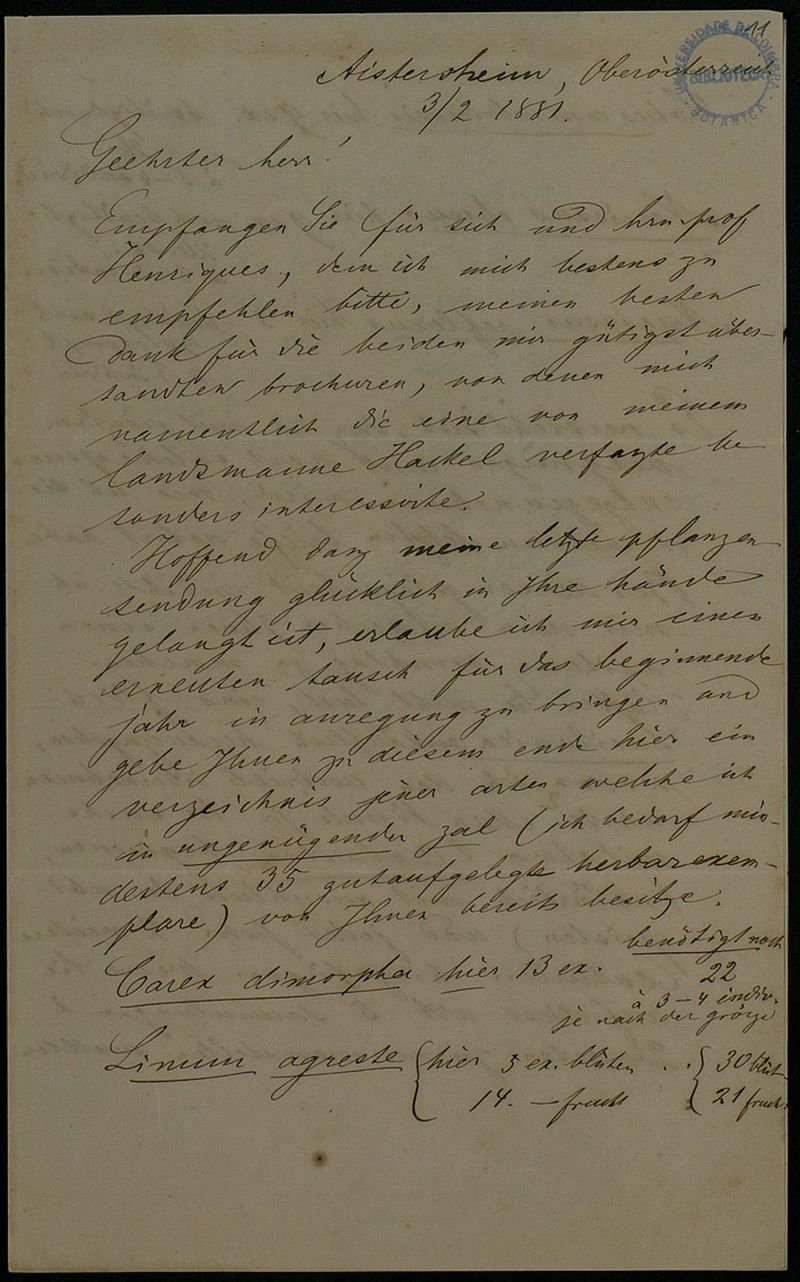 11
UNIVERSIDADE DE COIMBRA
BIBLIOTECA
BOTANICA
Aistersheim, Oberösterreich
3/2 1881.
Geehrter herr!
Empfangen Sie für sich und hrn prof
Henriques, dem ich mich bestens zu
empfehlen bitte, meinen besten
dank für die beiden mir gütigst über-
sandten brochuren, von denen mich
namentlich die eine von meinem
landsmanne Hackel verfaszte be
sonders interessirte.
Hoffend dasz meine letzte pflanzen-
sendung glücklich in Ihre hände
gelangt ist, erlaube ich mir einen
erneuten tausch für das beginnende
jahr in anregung zu bringen und
gebe Ihnen zu diesem ende hier ein
verzeichnis jener arten welche ich
in ungenügender zal (ich bedarf min-
destens 35 gutaufgelegte herbarexem-
plare) von Ihnen bereits besitze.
benötigt noch
Carex dimorpha hier 13 ex. 22
à 3-4 indiv.
je nach der grösze
Linum agreste { hier 5 ex. blüten . . { 30 blüt
14. — frucht { 21 frucht